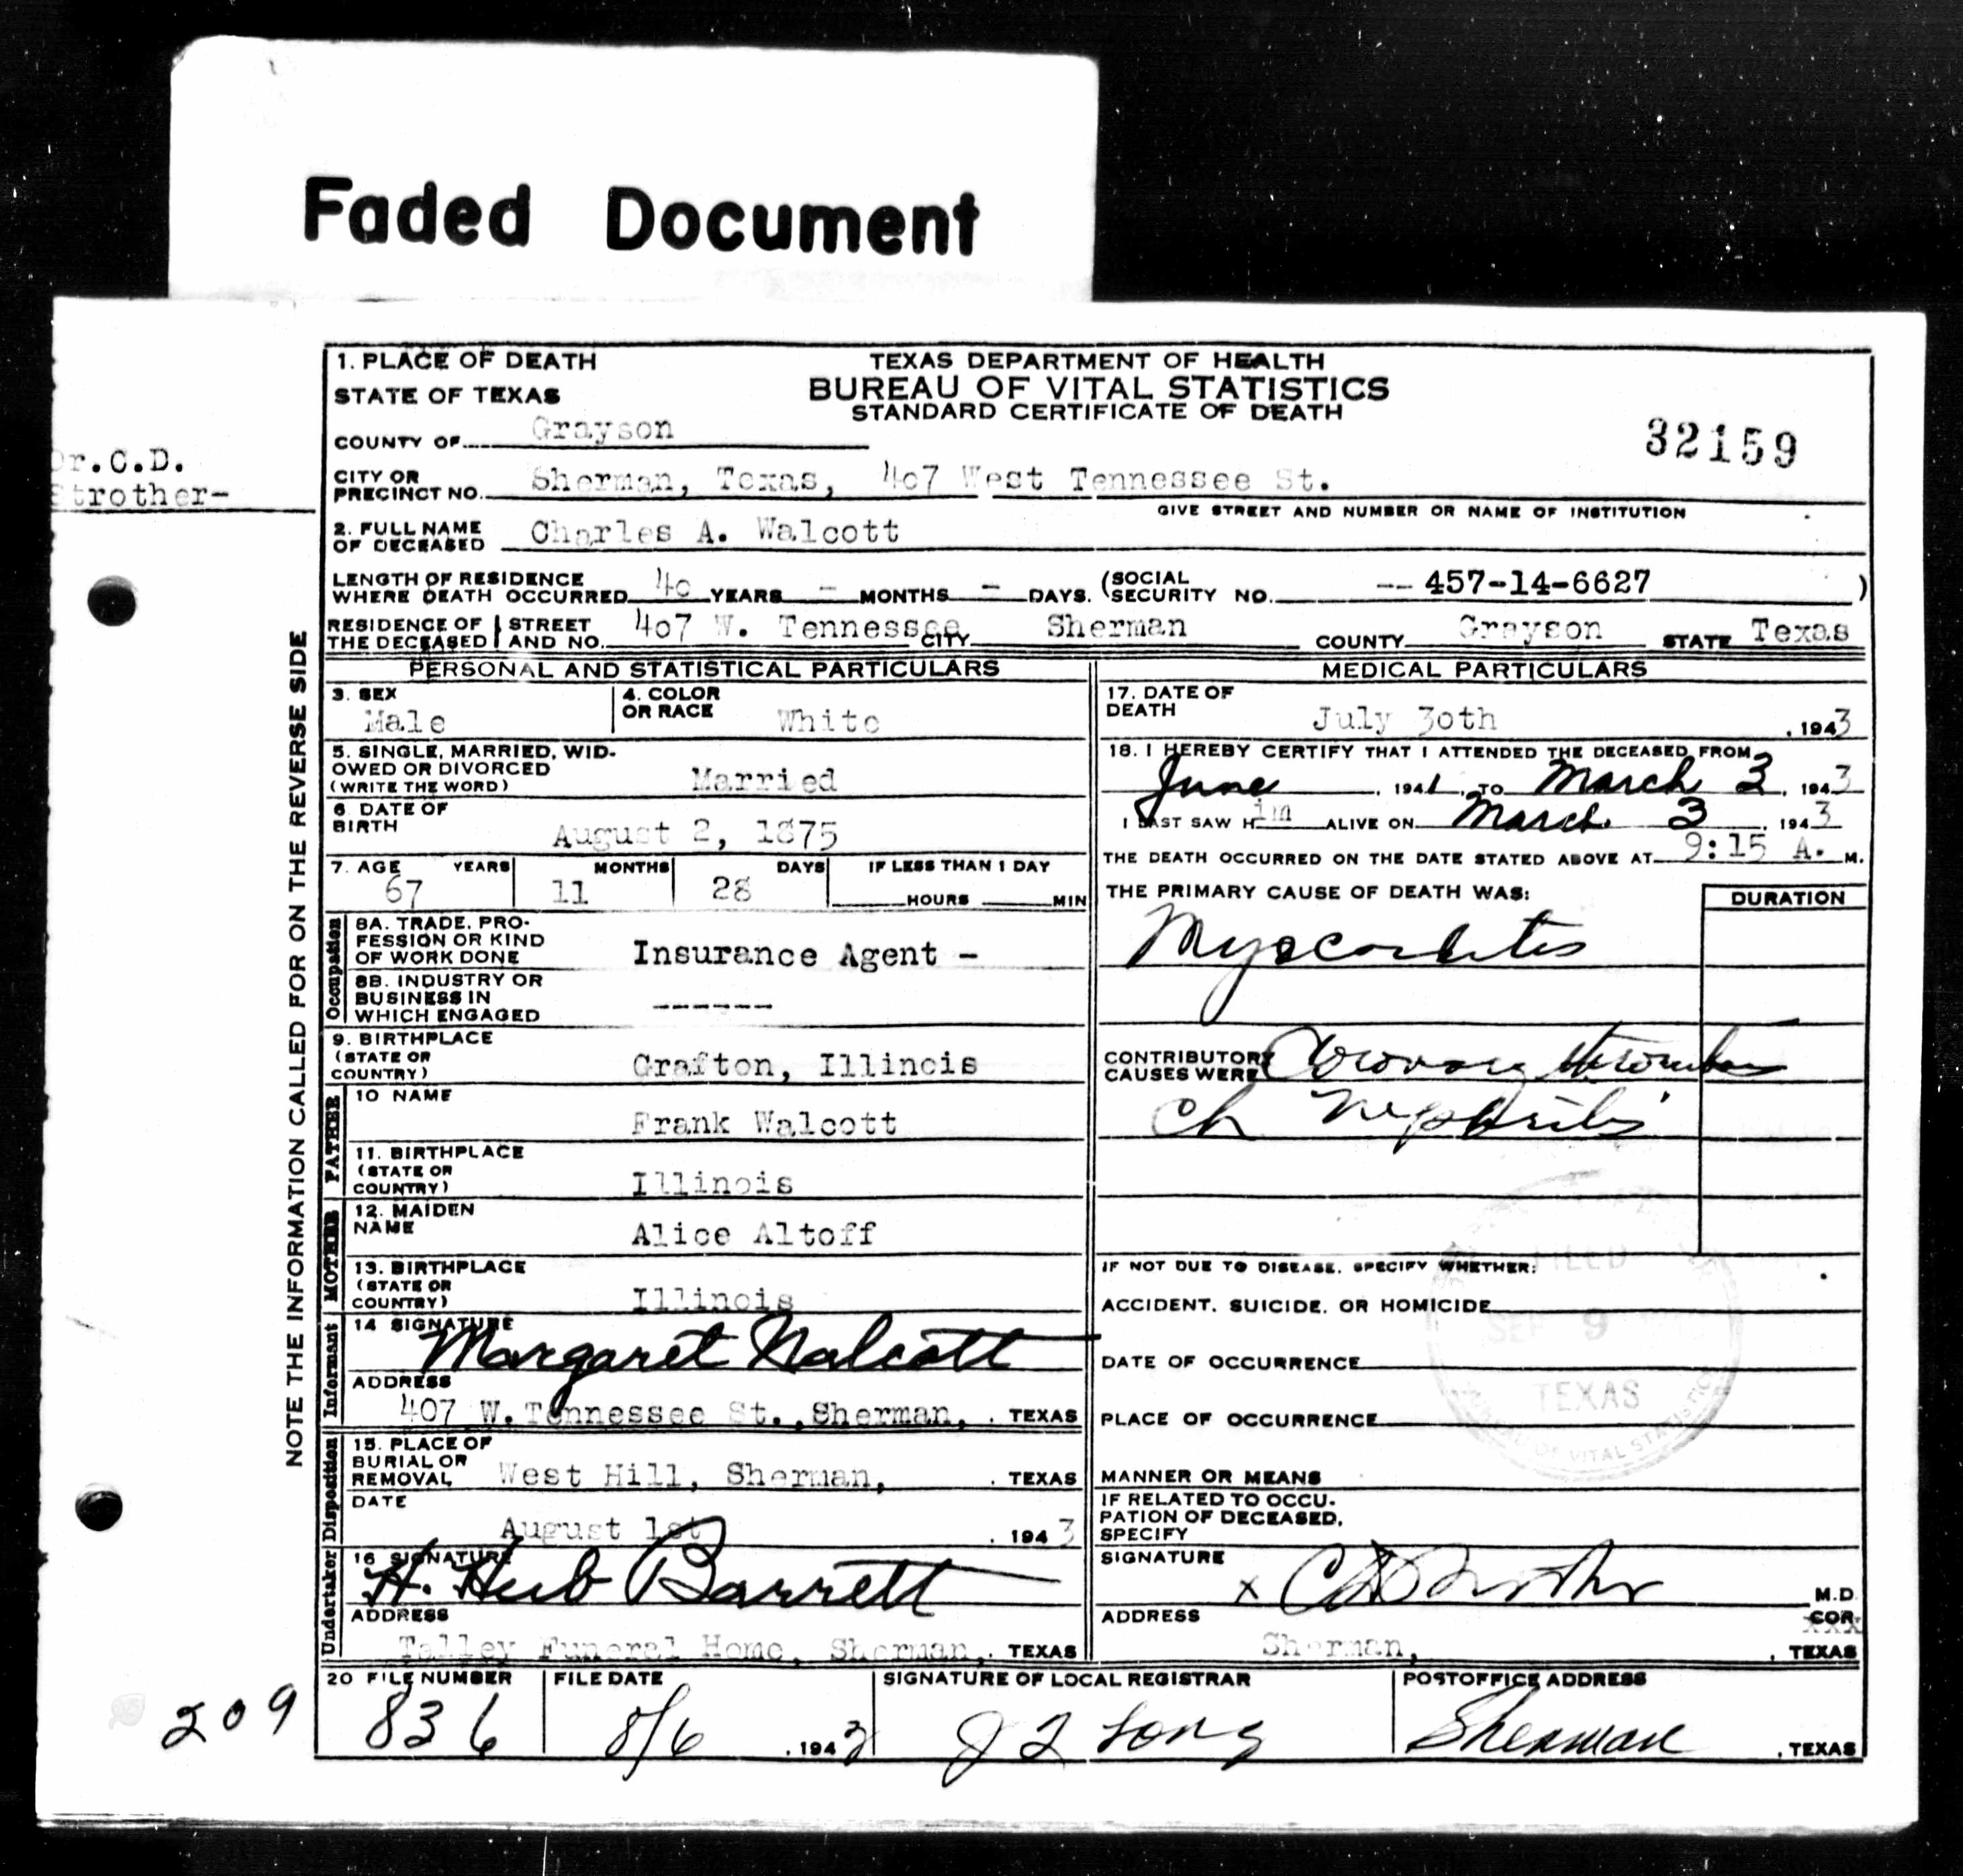 Faded Document
1. PLACE OF DEATH
STATE OF TEXAS
TEXAS DEPARTMENT OF HEALTH
BUREAU OF VITAL STATISTICS
STANDARD CERTIFICATE OF DEATH
32159
COUNTY OF Grayson
Dr. C.D.
Strother-
CITY OR PRECINCT NO. Sherman, Texas, 407 West Tennessee St.
GIVE STREET AND NUMBER OR NAME OF INSTITUTION
2. FULL NAME OF DECEASED Charles A. Walcott
LENGTH OF RESIDENCE WHERE DEATH OCCURRED 40 YEARS - MONTHS - DAYS. (SOCIAL SECURITY NO. -- 457-14-6627 )
RESIDENCE OF THE DECEASED STREET AND NO. 407 W. Tennessee CITY Sherman COUNTY Grayson STATE Texas
NOTE THE INFORMATION CALLED FOR ON THE REVERSE SIDE
PERSONAL AND STATISTICAL PARTICULARS
3. SEX Male
4. COLOR OR RACE White
5. SINGLE, MARRIED, WIDOWED OR DIVORCED (WRITE THE WORD) Married
6 DATE OF BIRTH August 2, 1875
7. AGE YEARS MONTHS DAYS IF LESS THAN 1 DAY
67 11 28 HOURS MIN
Occupation
8A. TRADE, PROFESSION OR KIND OF WORK DONE Insurance Agent -
8B. INDUSTRY OR BUSINESS IN WHICH ENGAGED ------
9. BIRTHPLACE (STATE OR COUNTRY) Grafton, Illinois
FATHER
10 NAME Frank Walcott
11. BIRTHPLACE (STATE OR COUNTRY) Illinois
MOTHER
12. MAIDEN NAME Alice Altoff
13. BIRTHPLACE (STATE OR COUNTRY) Illinois
Informant
14 SIGNATURE Margaret Walcott
ADDRESS
407 W. Tennessee St., Sherman, . TEXAS
Disposition
15. PLACE OF BURIAL OR REMOVAL West Hill, Sherman, . TEXAS
DATE August 1st . 1943
Undertaker
16 SIGNATURE H. Herb Barrett
ADDRESS
Talley Funeral Home, Sherman, . TEXAS
MEDICAL PARTICULARS
17. DATE OF DEATH July 30th , 1943
18. I HEREBY CERTIFY THAT I ATTENDED THE DECEASED FROM
June , 1941, TO March 3, 1943
I LAST SAW Him ALIVE ON March 3 1943
THE DEATH OCCURRED ON THE DATE STATED ABOVE AT 9:15 A. M.
THE PRIMARY CAUSE OF DEATH WAS: DURATION
Myocarditis
CONTRIBUTORY CAUSES WERE Coronary thrombosis
Ch Nephritis
IF NOT DUE TO DISEASE, SPECIFY WHETHER:
ACCIDENT, SUICIDE, OR HOMICIDE
DATE OF OCCURRENCE
PLACE OF OCCURRENCE
MANNER OR MEANS
FILED
SEP 9
TEXAS
BUREAU OF VITAL STATISTICS
IF RELATED TO OCCUPATION OF DECEASED, SPECIFY
SIGNATURE x CD Strother M.D.
COR.
XXX
ADDRESS
Sherman, , TEXAS
20 FILE NUMBER FILE DATE SIGNATURE OF LOCAL REGISTRAR POSTOFFICE ADDRESS
209 836 8/6 , 1943 J Long Sherman , TEXAS